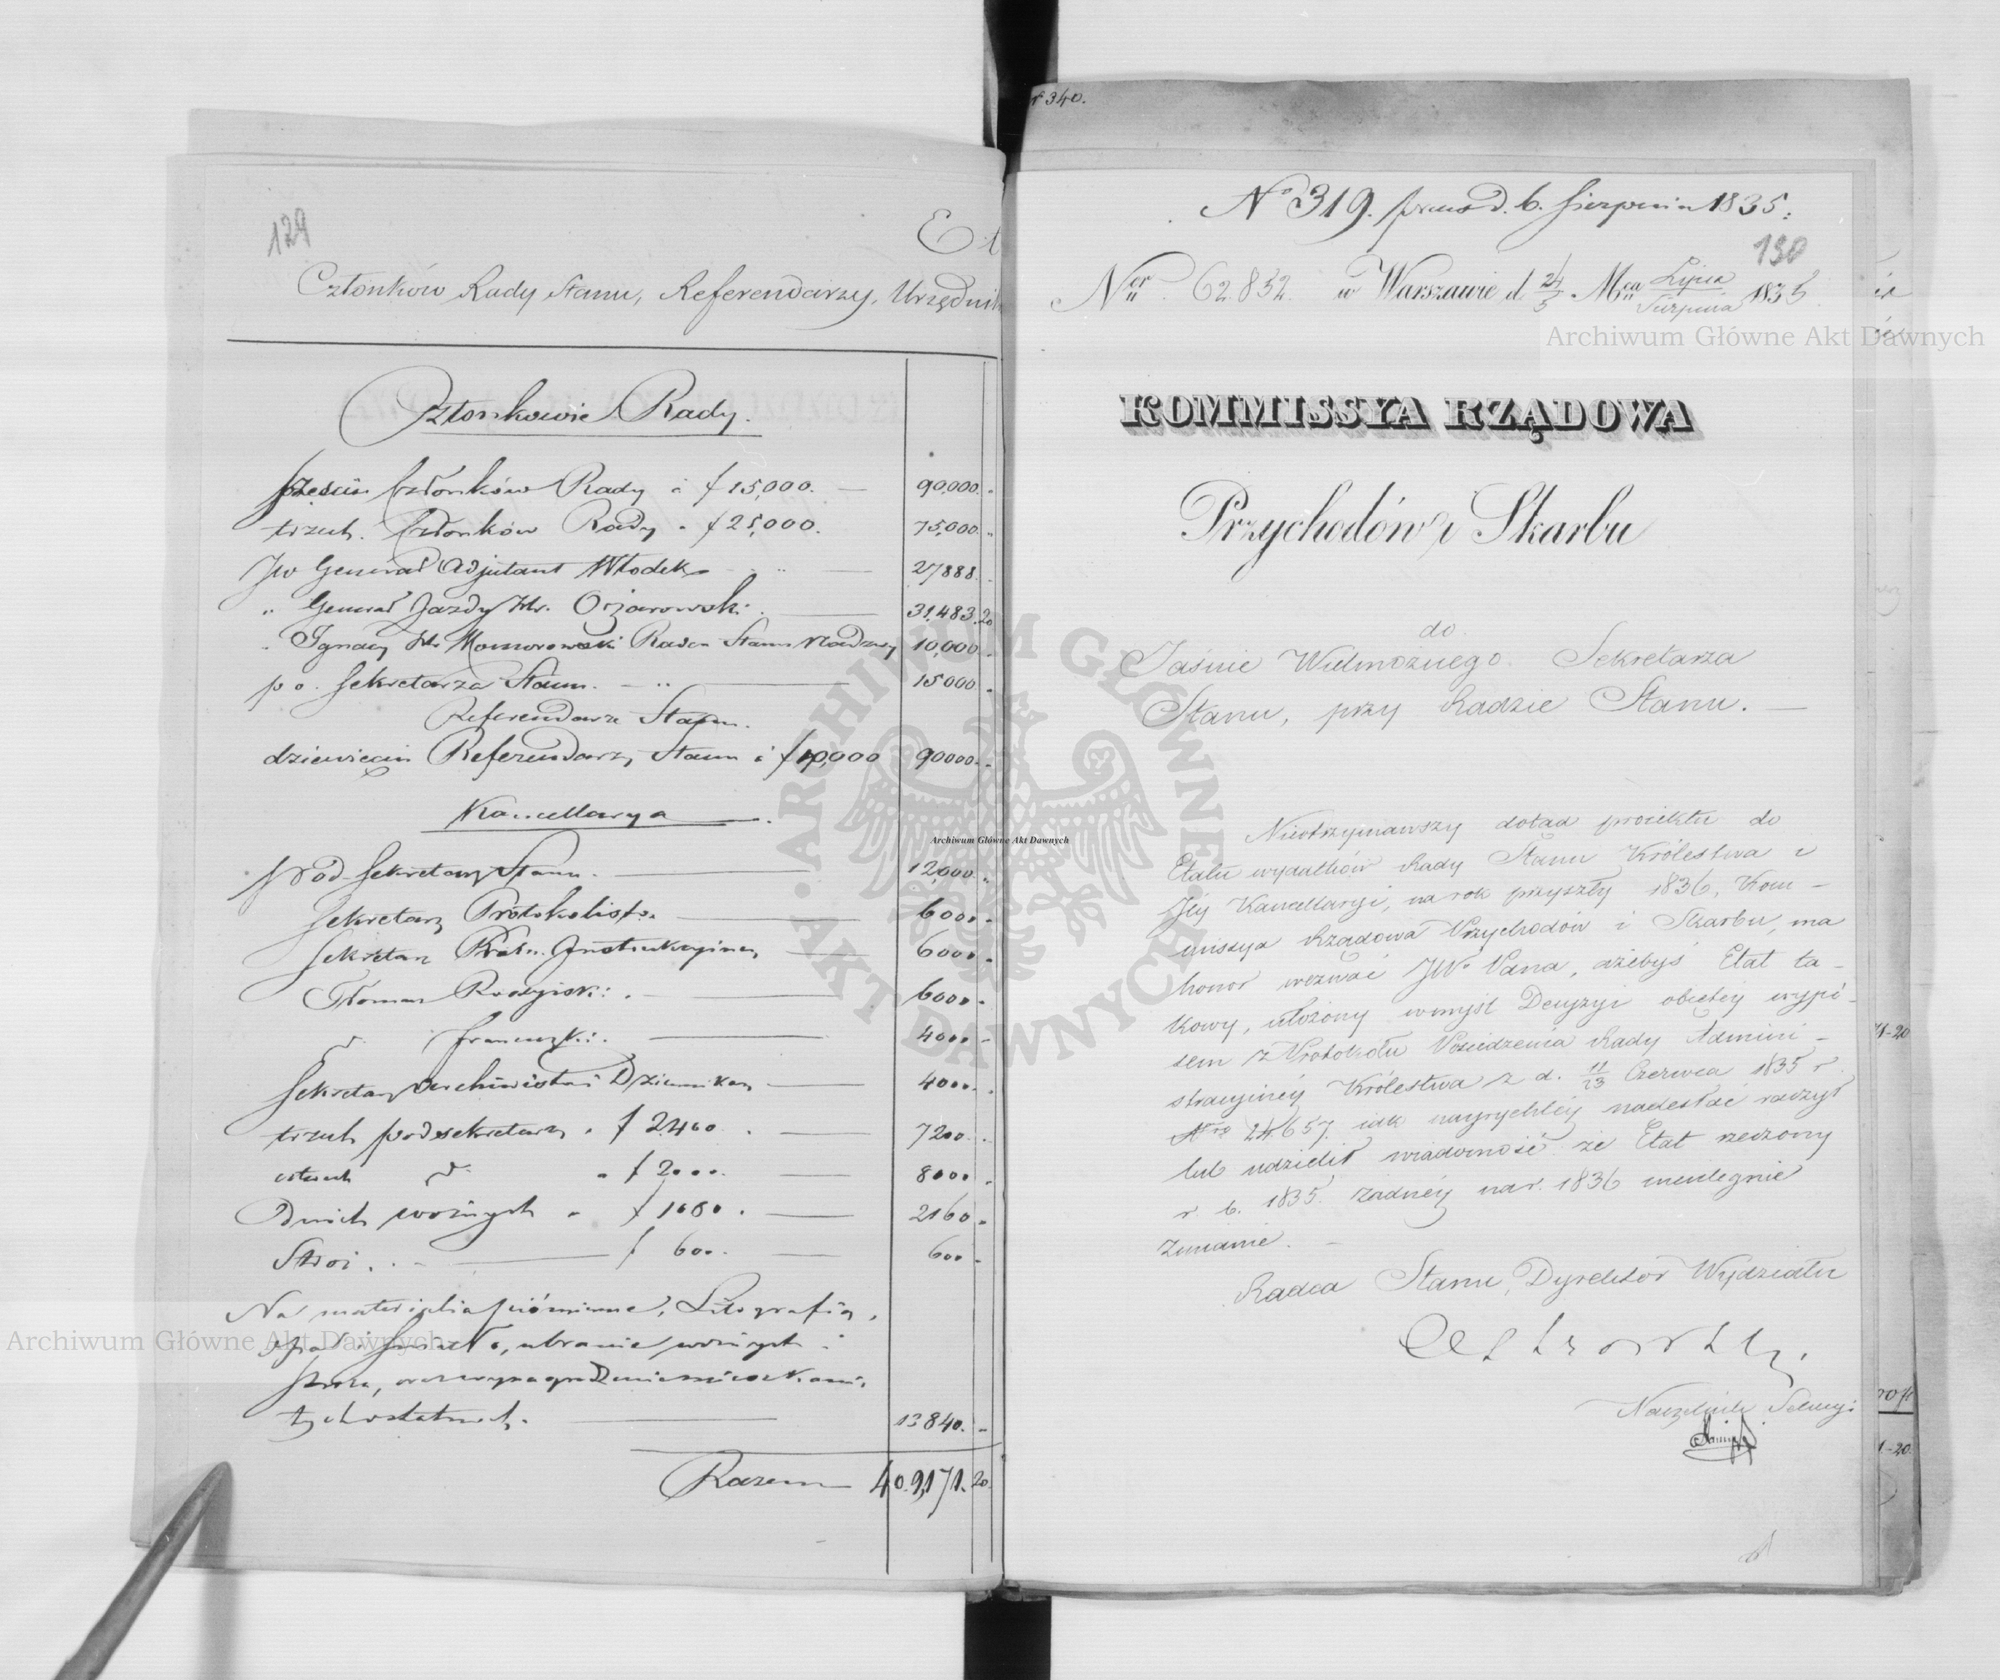 129
Et
Członków Rady Stanu, Referendarzy, Urzędnik
Członkowie Rady.
sześciu Członków Rady à f 15,000. — 90,000.
trzech Członków Rady à f 25,000. 75,000.
JW Generał Adjutant Włodek — 27888.
" Generał Jazdy Hr. Ożarowski — 31,483.20
" Ignacy Hr Komorowski Radca Stanu Nadzwy 10,000
p. o. Sekretarza Stanu. — 15000
Referendarze Stanu.
dziewięciu Referendarzy Stanu à f 10,000 90000
Kancellarya
pod Sekretarz Stanu. — 12,000
Sekretarz Protokolista — 6000
Sekretarz Instrukcyiny — 6000
Tłomacz Rossyiski — 6000
d° francuzki. — 4000
Sekretarz Archiwista i Dziennikarz — 4000
trzech podsekretarzy à f 2400. — 7200
czterech d° à f 2000. — 8000
Dwóch woźnych à f 1080. — 2160
Stróż — f 600. — 600
Na materialia piśmienne, Litografią,
opał i światło, ubranie woźnych i
stróża, oraz wynagrodzenie mieszkania
tychostatnich. — 13840.
Razem 409,171.20
N° 340.
N° 319. praes d. 6. Sierpnia 1835.
130
Ner 62.832. w Warszawie d. 24/5 Mca Lipca/Sierpnia 1835
KOMMISSYA RZĄDOWA
Przychodów i Skarbu
do
Jaśnie Wielmożnego Sekretarza
Stanu, przy Radzie Stanu. —
Nieotrzymawszy dotąd proiektu do
Etatu wydatków Rady Stanu Królestwa i
Jéy Kancellaryi, na rok przyszły 1836, Kom-
missya Rządowa Przychodów i Skarbu, ma
honor wezwać JW° Pana, ażebyś Etat ta-
kowy, ułożony wmyśl Decyzyi obiętéy wypi-
sem z Protokołu Posiedzenia Rady Admini-
stracyinéy Królestwa z d. 11/23 Czerwca 1835 r.
Nro 24657. iak nayrychléy nadesłać raczył
lub udzielił wiadomość że Etat rzeczony
r. b. 1835. żadnéy na r. 1836 nieulegnie
zmianie. —
Radca Stanu, Dyrektor Wydziału
Naczelnik Sekcyi
Archiwum Główne Akt Dawnych
Archiwum Główne Akt Dawnych
Archiwum Główne Akt Dawnych
ARCHIWUM GŁÓWNE AKT DAWNYCH